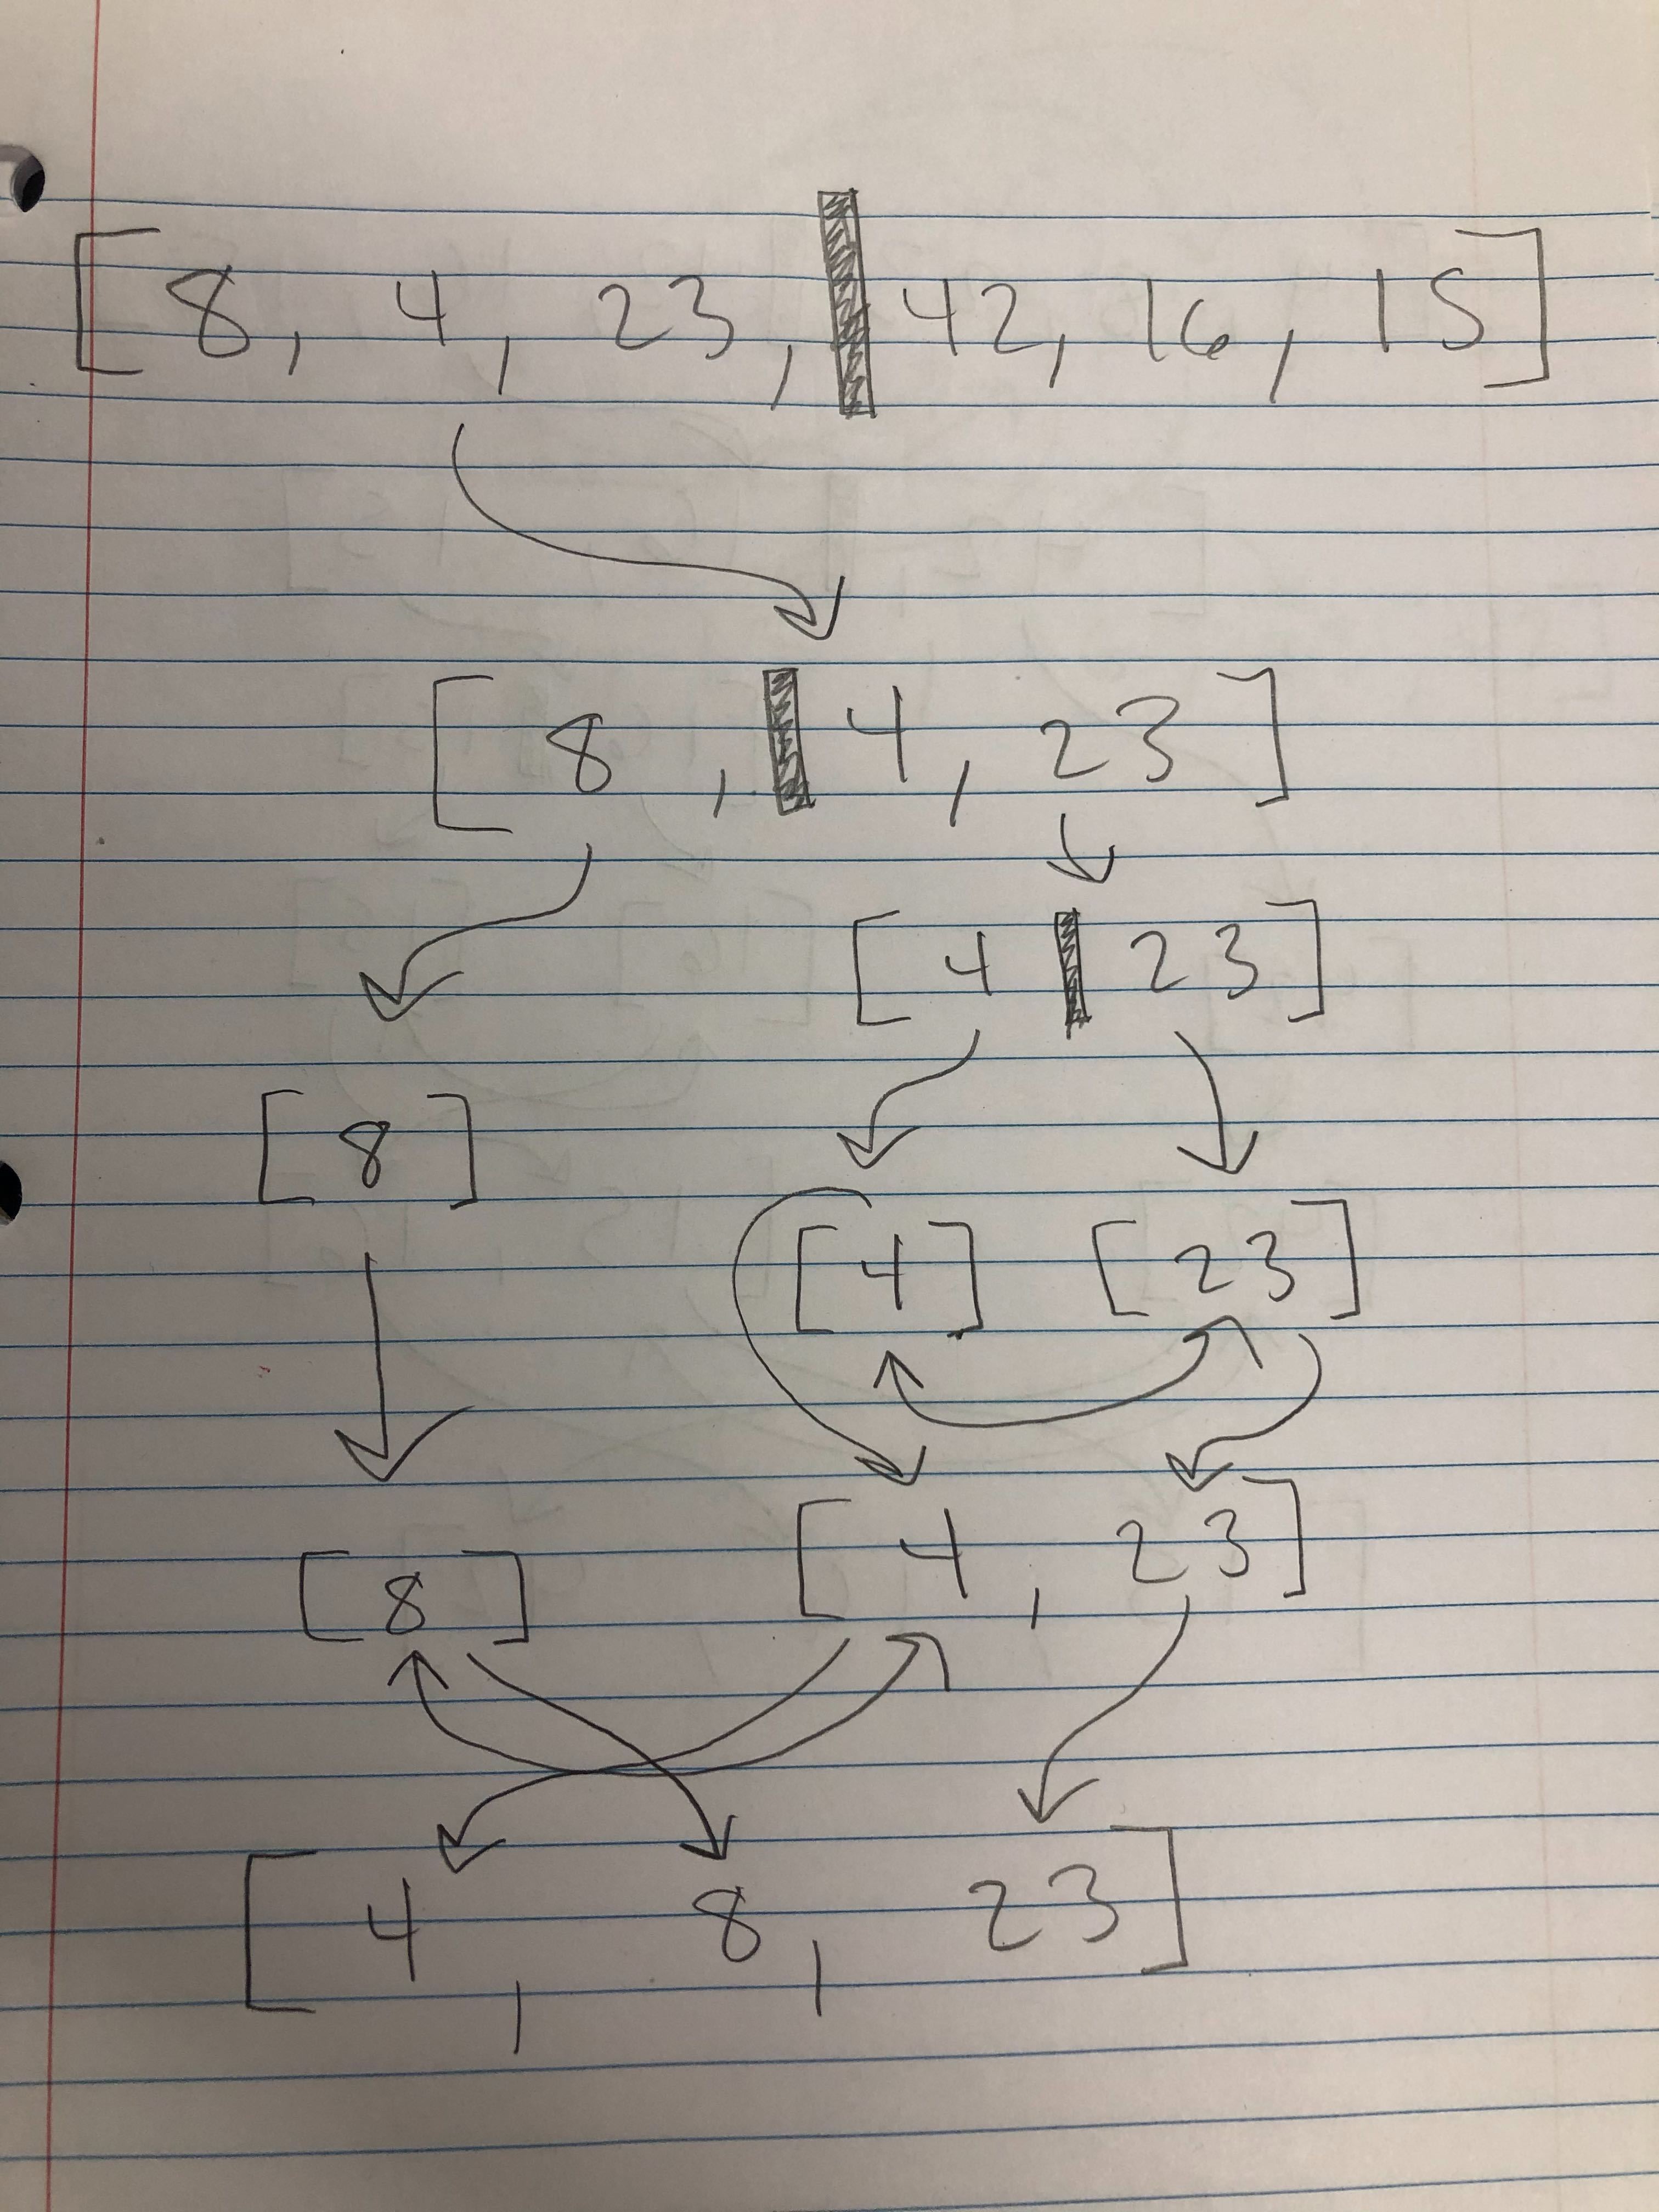 [8, 4, 23, 42, 16, 15]
[8, 4, 23]
[4 23]
[8]
[4] [23]
[8] [4, 23]
[4, 8, 23]